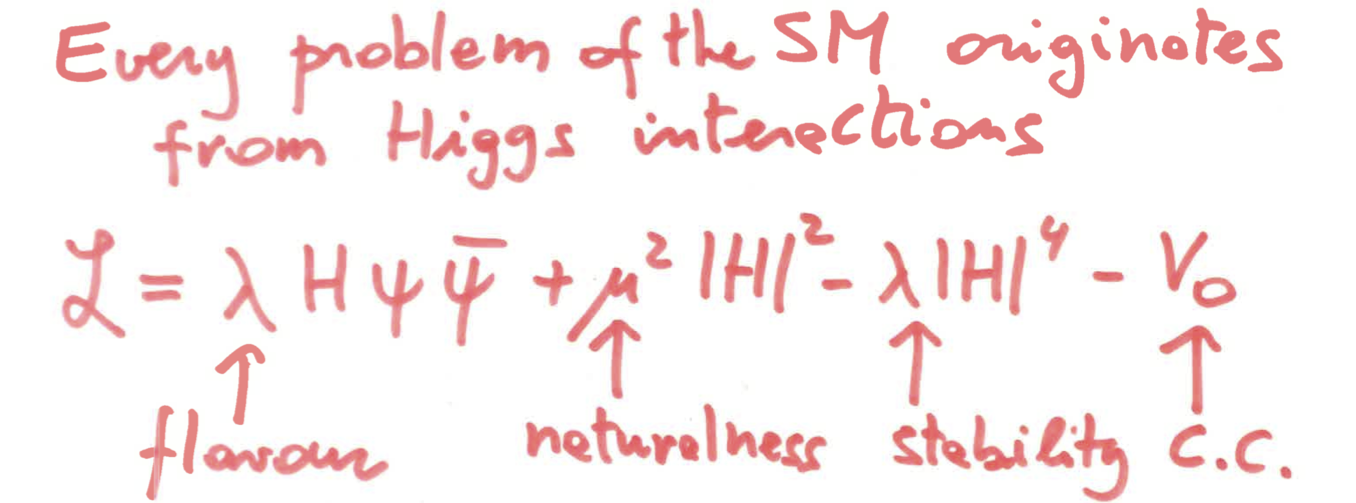 Every problem of the SM originates
from Higgs interactions
ℒ = λ H ψ ψ̄ + μ² |H|² - λ |H|⁴ - V₀
↑ ↑ ↑ ↑
flavour naturalness stability C.C.